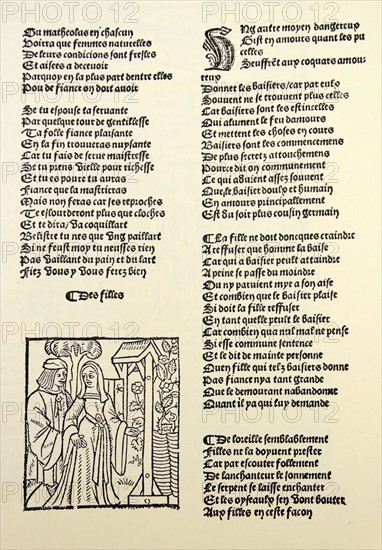 Du matheolus en chascun
Voirra que femmes naturelles
De leurs condicions sont fresles
Et aisees a decevoir
Parquoy en la plus part dentre elles
Pou de fiance on doit avoir
Se tu espouse ta servante
Par quelque tour de gentillesse
Ta folle fiance plaisante
En la fin trouveras nuysante
Car tu fais de serve maistresse
Se tu prens vielle pour richesse
Et tu es povre tu auras
Fiance que la mastrieras
Mais non feras car ses reproches
Te estourderont plus que cloches
Et te dira/ va coquillart
Belistre tu nes que ung paillart
Si ne feust moy tu neusses rien
Pas vaillant du pain et du lart
Fiez vous y vous ferez bien
Des filles
Ung autre moyen dangereux
Gist en amours quant les pu
celles
Seuffrēt aux coquars amou-
reux
Donnet les baisiers/car par eulx
Souvent ne se trouvent plus celles
Car baisiers sont les estincelles
Qui alument le feu damours
Et mettent les choses en cours
Baisiers sont les commencemens
De plus secretz attouchemens
Pource dit on communement
Ce qui advient assez souvent
Que se baisier doulx et humain
En amours principallement
Est du soir plus cousin germain
La fille ne doit doncques craindre
A reffuser que homme la baise
Car qui a baisier peult attaindre
A peine se passe du moindre
Ou ny parvient mye a son aise
Et combien que se baisier plaise
Si doit la fille reffuser
En tant quelle peult le baisier
Car combien que nul mal ne pense
Si esse commune sentence
Et se dit de mainte personne
Quen fille qui telz baisiers donne
Pas fiance nya tant grande
Que le demourant nabandonne
Quant il ya qui luy demande
De loreille semblablement
Filles ne la doyvent prester
Car par escouter follement
De lanchanteur le sonnement
Le serpent se laisse enchanter
Et les oyseaulx sen vont bouter
Aux filles en ceste facon